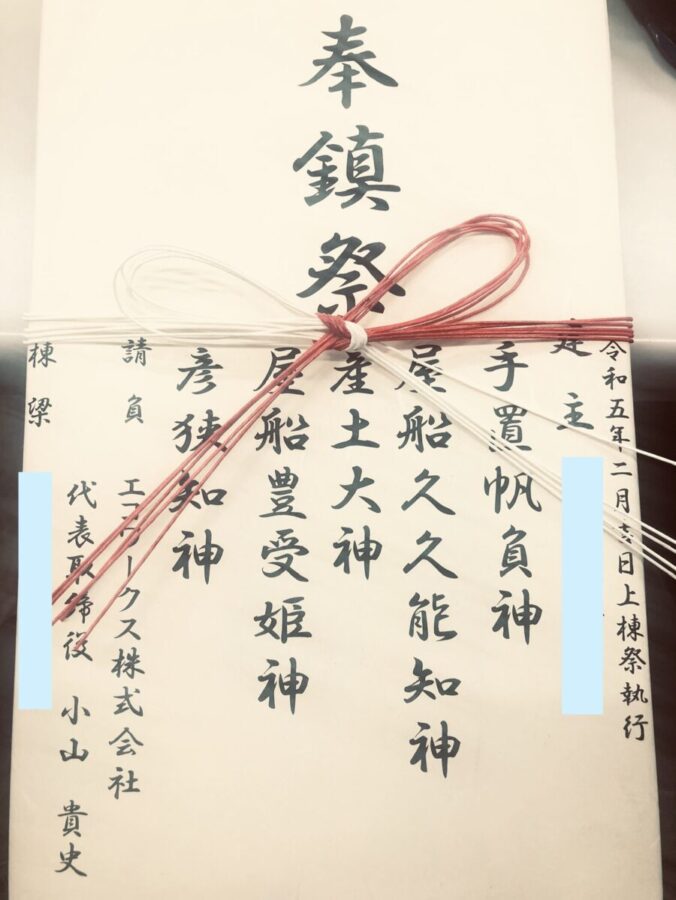 奉鎮祭
令和五年二月日上棟祭執行
建主
手置帆負神
屋船久久能知神
産土大神
屋船豊受姫神
彦狭知神
請負 エコワークス株式会社
代表取締役 小山 貴史
棟梁